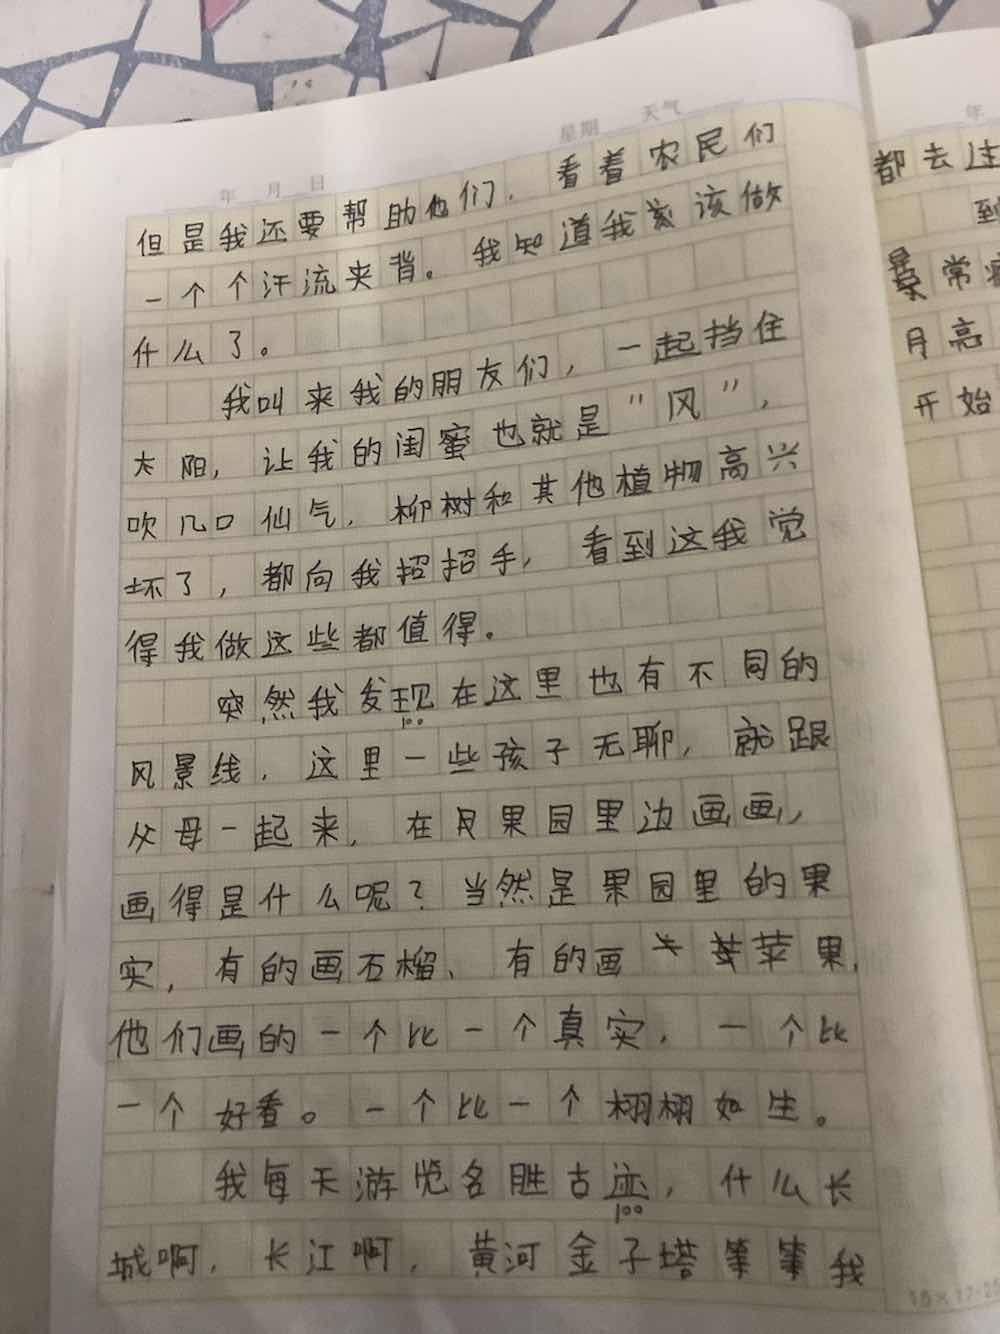 星期 天气
年 月 日
但是我还要帮助他们，看着农民们
一个个汗流夹背。我知道我该做
什么了。
我叫来我的朋友们，一起挡住
太阳，让我的闺蜜也就是"风"，
吹几口仙气，柳树和其他植物高兴
坏了，都向我招招手，看到这我觉
得我做这些都值得。
突然我发现在这里也有不同的
100
风景线，这里一些孩子无聊，就跟
父母一起来，在果园里边画画，
画得是什么呢？当然是果园里的果
实，有的画石榴、有的画苹果，
他们画的一个比一个真实，一个比
一个好看。一个比一个栩栩如生。
我每天游览名胜古迹，什么长
100
城啊，长江啊，黄河金子塔等等我
年
都去过
到
常
月亮
开始